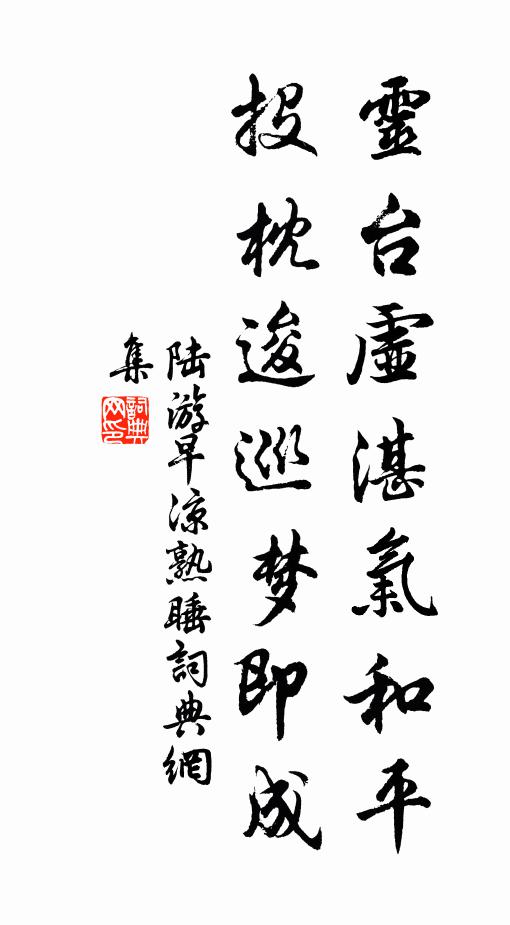 靈台虛湛氣和平
投枕逡巡梦即成
陆游早凉熟睡詞典網
集
詞典
网印